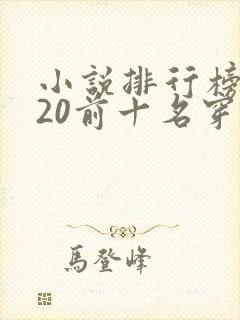 小説排行榜
20前十名穿
馬登峰